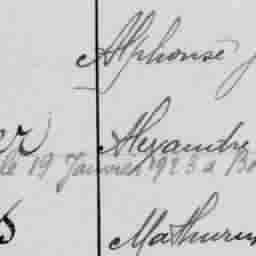 Alphonse
Alexandre
le 19 Janvier 1923 à
Mathurin